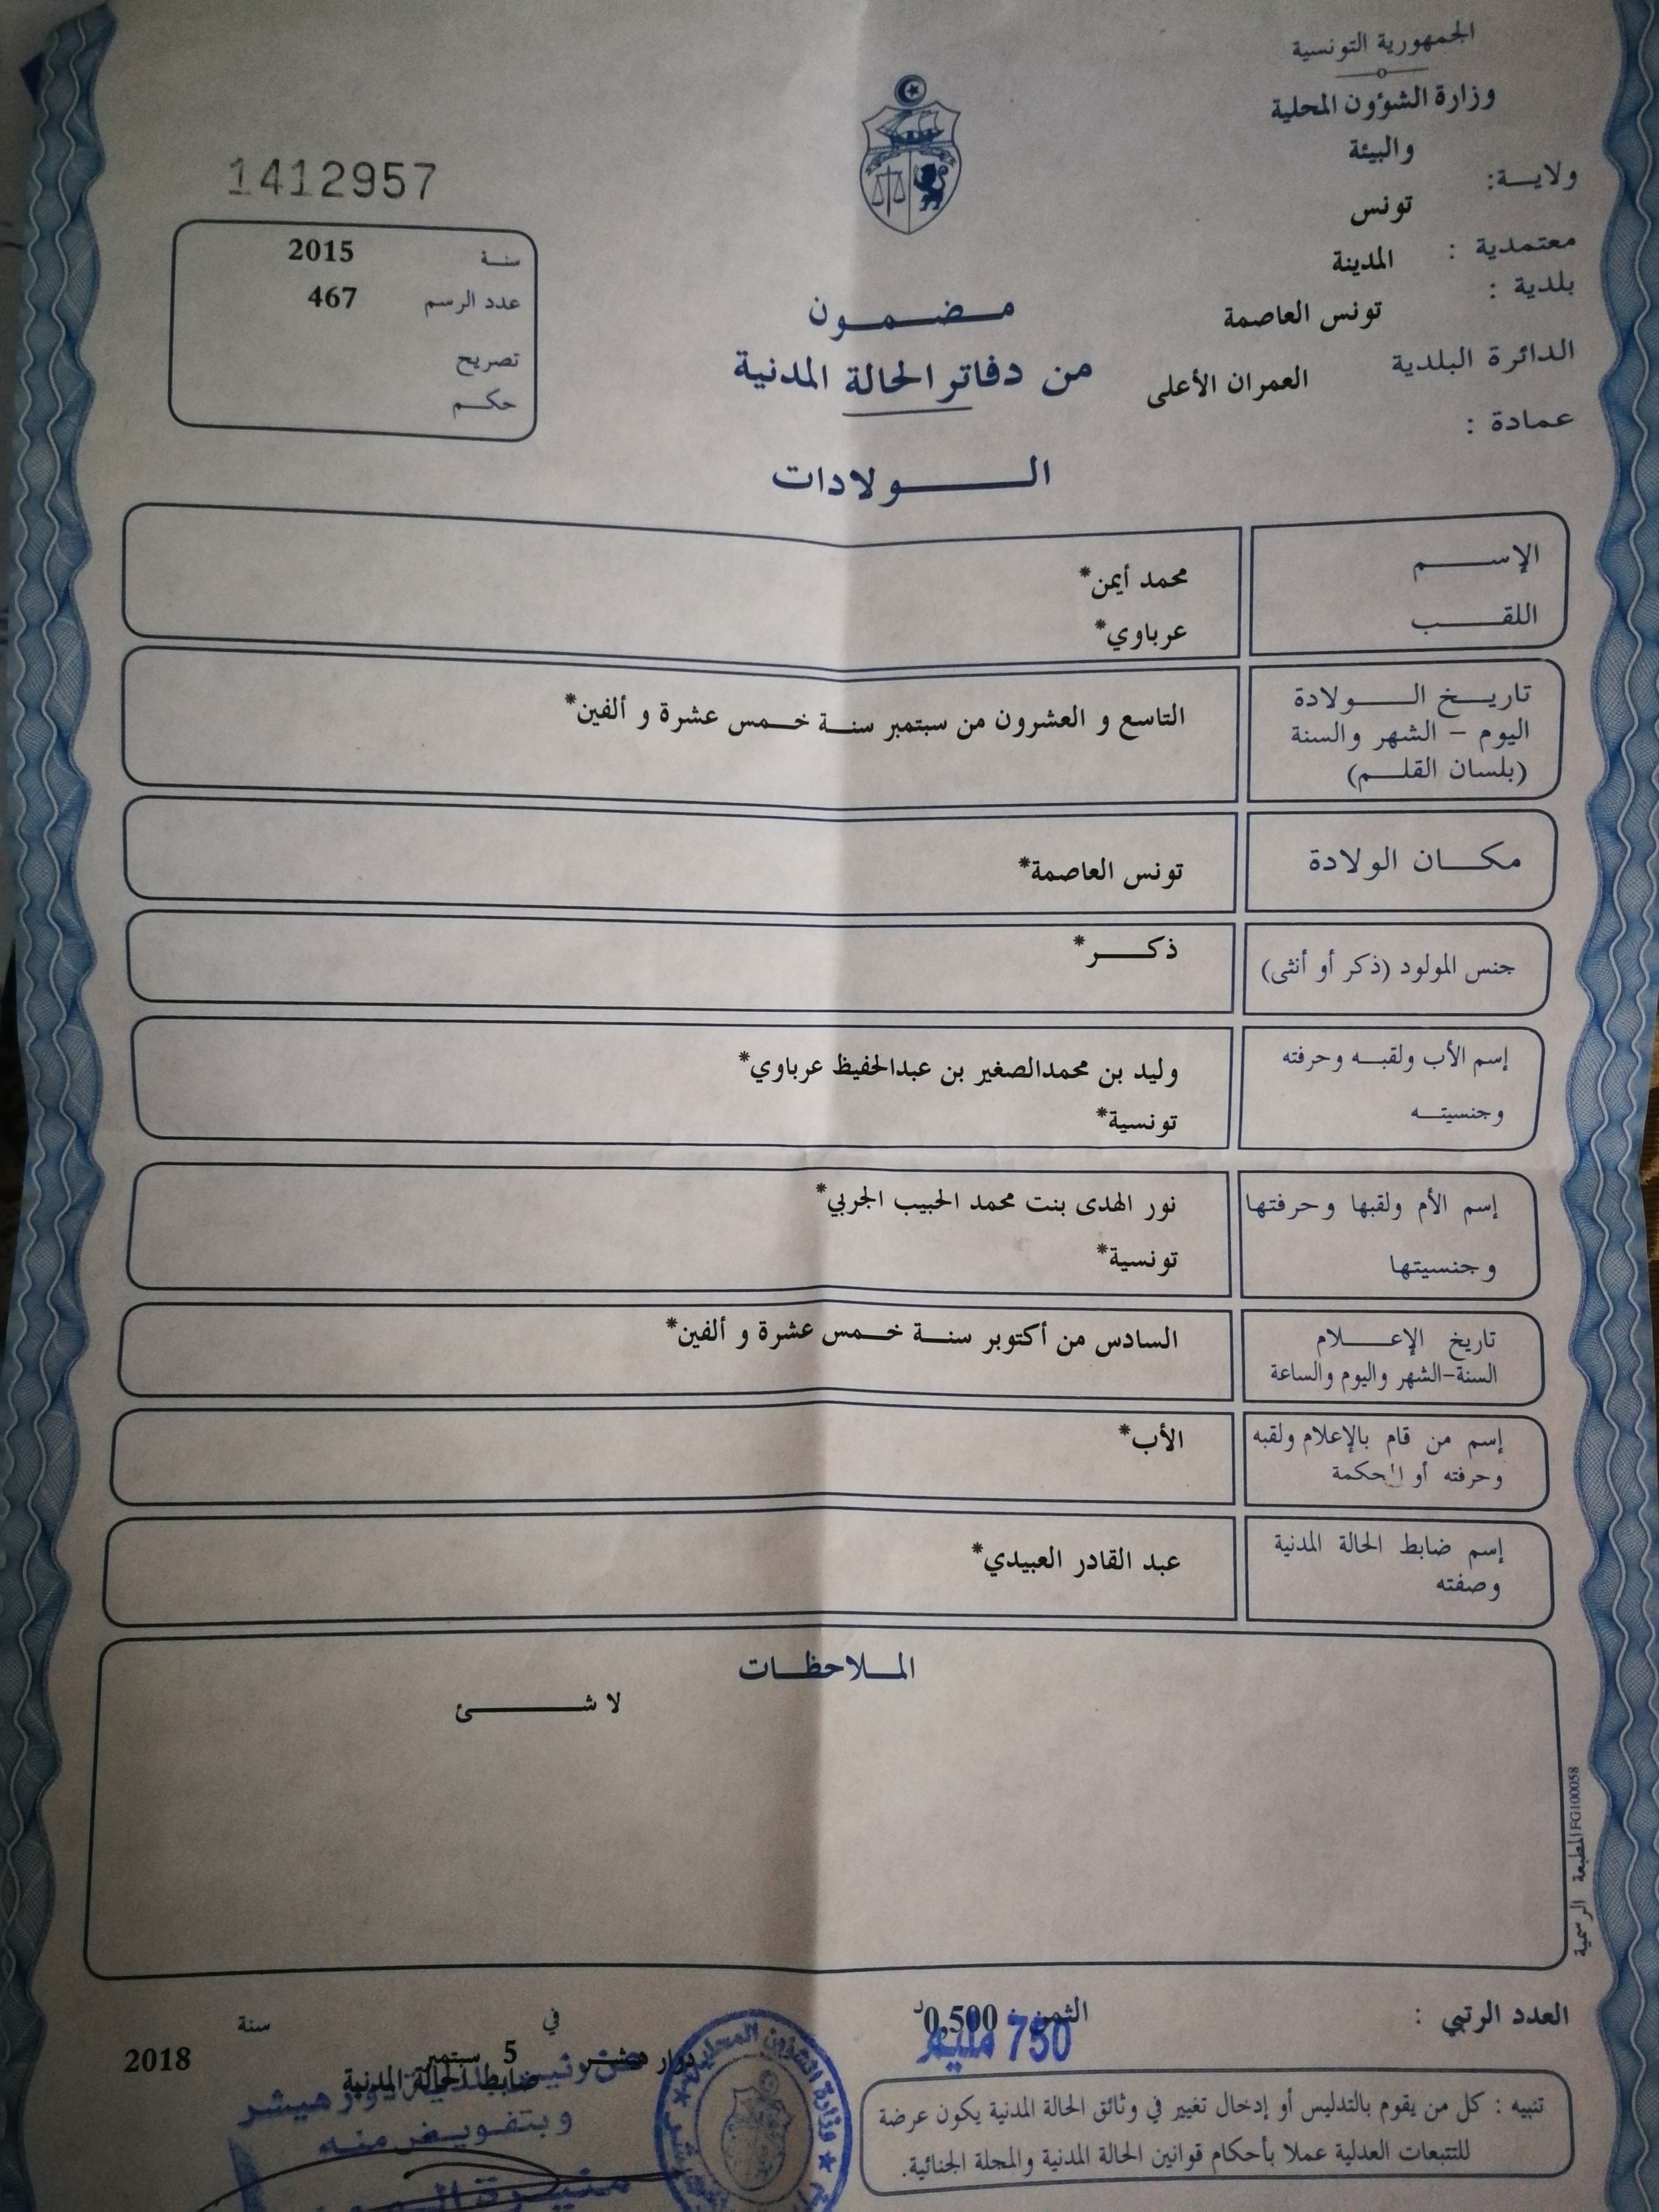 الجمهورية التونسية
وزارة الشؤون المحلية
والبيئة
ولايـــة:
تونس
معتمدية :
المدينة
بلدية :
تونس العاصمة
الدائرة البلدية
العمران الأعلى
عمادة :
1412957
سنــة 2015
عدد الرسم 467
تصريح
حكــم
مـضـمـون
من دفاتر الحالة المدنية
الـولادات
الإســم محمد أيمن*
اللقــب عرباوي*
تاريـخ الـولادة
اليوم – الشهر والسنة
(بلسان القلــم)
التاسع و العشرون من سبتمبر سنـة خـمس عشرة و ألفين*
مكــان الولادة
تونس العاصمة*
جنس المولود (ذكر أو أنثى)
ذكــر*
إسم الأب ولقبـه وحرفته
وليد بن محمدالصغير بن عبدالحفيظ عرباوي*
وجنسيتــه
تونسية*
إسم الأم ولقبها وحرفتها
نور الهدى بنت محمد الحبيب الجربي*
وجنسيتها
تونسية*
تاريخ الإعــلام
السنة-الشهر واليوم والساعة
السادس من أكتوبر سنـة خـمس عشرة و ألفين*
إسم من قام بالإعلام ولقبه
وحرفته أو المحكمة
الأب*
إسم ضابط الحالة المدنية
وصفته
عبد القادر العبيدي*
الملاحظات
لا شــئ
المطبعة الرسمية FG100058
العدد الرتبي :
الثمن : 0,500د
750 مليم
دوار هيشـر في 5 سبتمبر سنة 2018
ضابط الحالة المدنية
وبتفويض منه
وزارة الشؤون المحلية
تنبيه : كل من يقوم بالتدليس أو إدخال تغيير في وثائق الحالة المدنية يكون عرضة
للتتبعات العدلية عملا بأحكام قوانين الحالة المدنية والمجلة الجنائية.